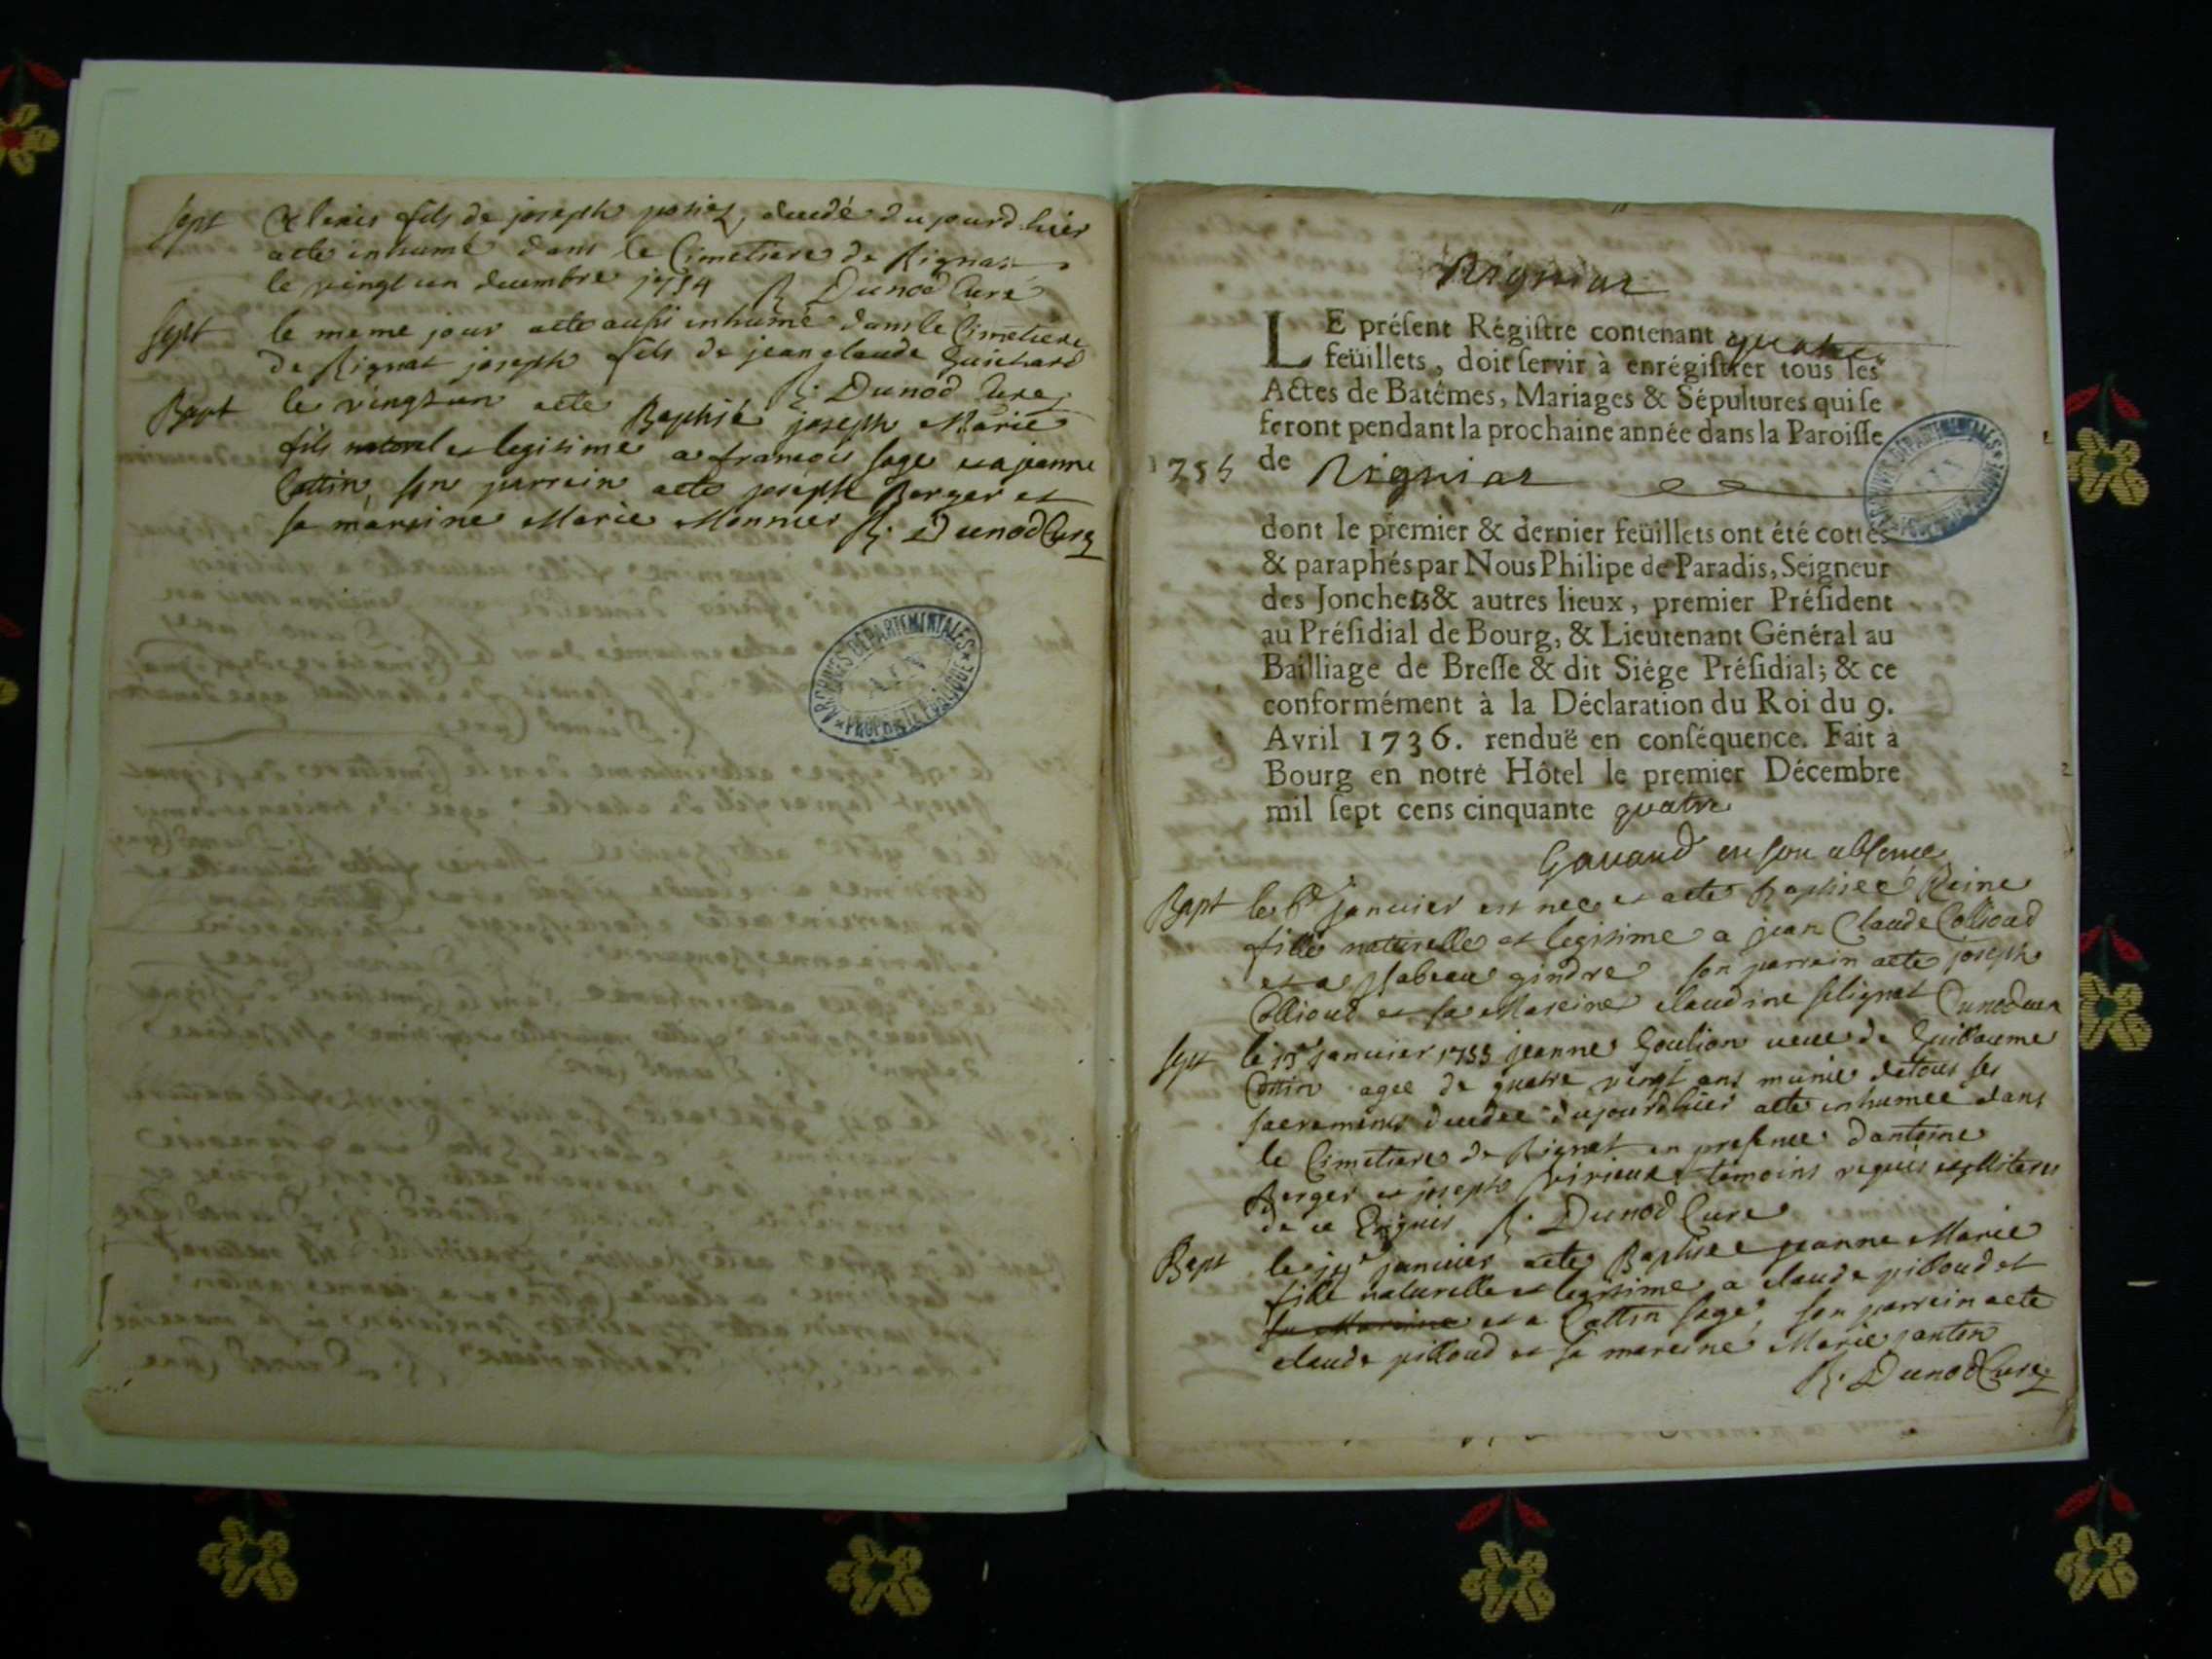 sept Alexis fils de joseph poisat, decedé du jourd'hier
aeté inhumé dans le Cimetiere de Rignat
le vingt un decembre 1754 R. Dunod Curé
sept le meme jour aeté aussi inhumé dans le Cimetiere
de Rignat joseph fils de jean claude Guichard
R. Dunod Curé
Bapt le vingt un aeté Baptisé joseph Marie
fils naturel et legitime a francois sage et a jeanne
Cottin, son parrein aeté joseph Berger et
sa mareine Marie Monnier R. Dunod Curé
ARCHIVES DÉPARTEMENTALES
AIN
PROPRIÉTÉ PUBLIQUE
Rigniat
LE préſent Régiſtre contenant quatre
feüillets, doit ſervir à enrégiſtrer tous les
Actes de Batêmes, Mariages & Sépultures qui ſe
feront pendant la prochaine année dans la Paroiſſe
1755 de Rigniat
ARCHIVES DÉPARTEMENTALES
AIN
dont le premier & dernier feüillets ont été cottés
& paraphés par Nous Philipe de Paradis, Seigneur
des Jonchers & autres lieux, premier Préſident
au Préſidial de Bourg, & Lieutenant Général au
Bailliage de Breſſe & dit Siége Préſidial; & ce
conformément à la Déclaration du Roi du 9.
Avril 1736. renduë en conſéquence. Fait à
Bourg en notre Hôtel le premier Décembre
mil ſept cens cinquante quatre
en son absence
Bapt le janvier est nee et aeté baptisée Reine
fille naturelle et legitime a jean Claude Collioud
et a ysabeau gindre son parrein aeté joseph
Collioud et sa Mareine claudine selignat Dunod curé
sept le janvier 1755 jeanne Goulion veuve de Guillaume
Cottin agee de quatre vingt ans munie de tous ses
sacremens decedee dujourd'hier aeté inhumee dans
le Cimetiere de Rignat en presence d'antoine
Berger et joseph virieux temoins requis et illiteres
de ce Enquis R. Dunod Curé
Bapt le janvier aeté Baptisee jeanne Marie
fille naturelle et legitime a claude pilloud et
sa Mareine et a Cottin sage, son parrein aeté
claude pilloud et sa mareine Marie jantin
R. Dunod Curé